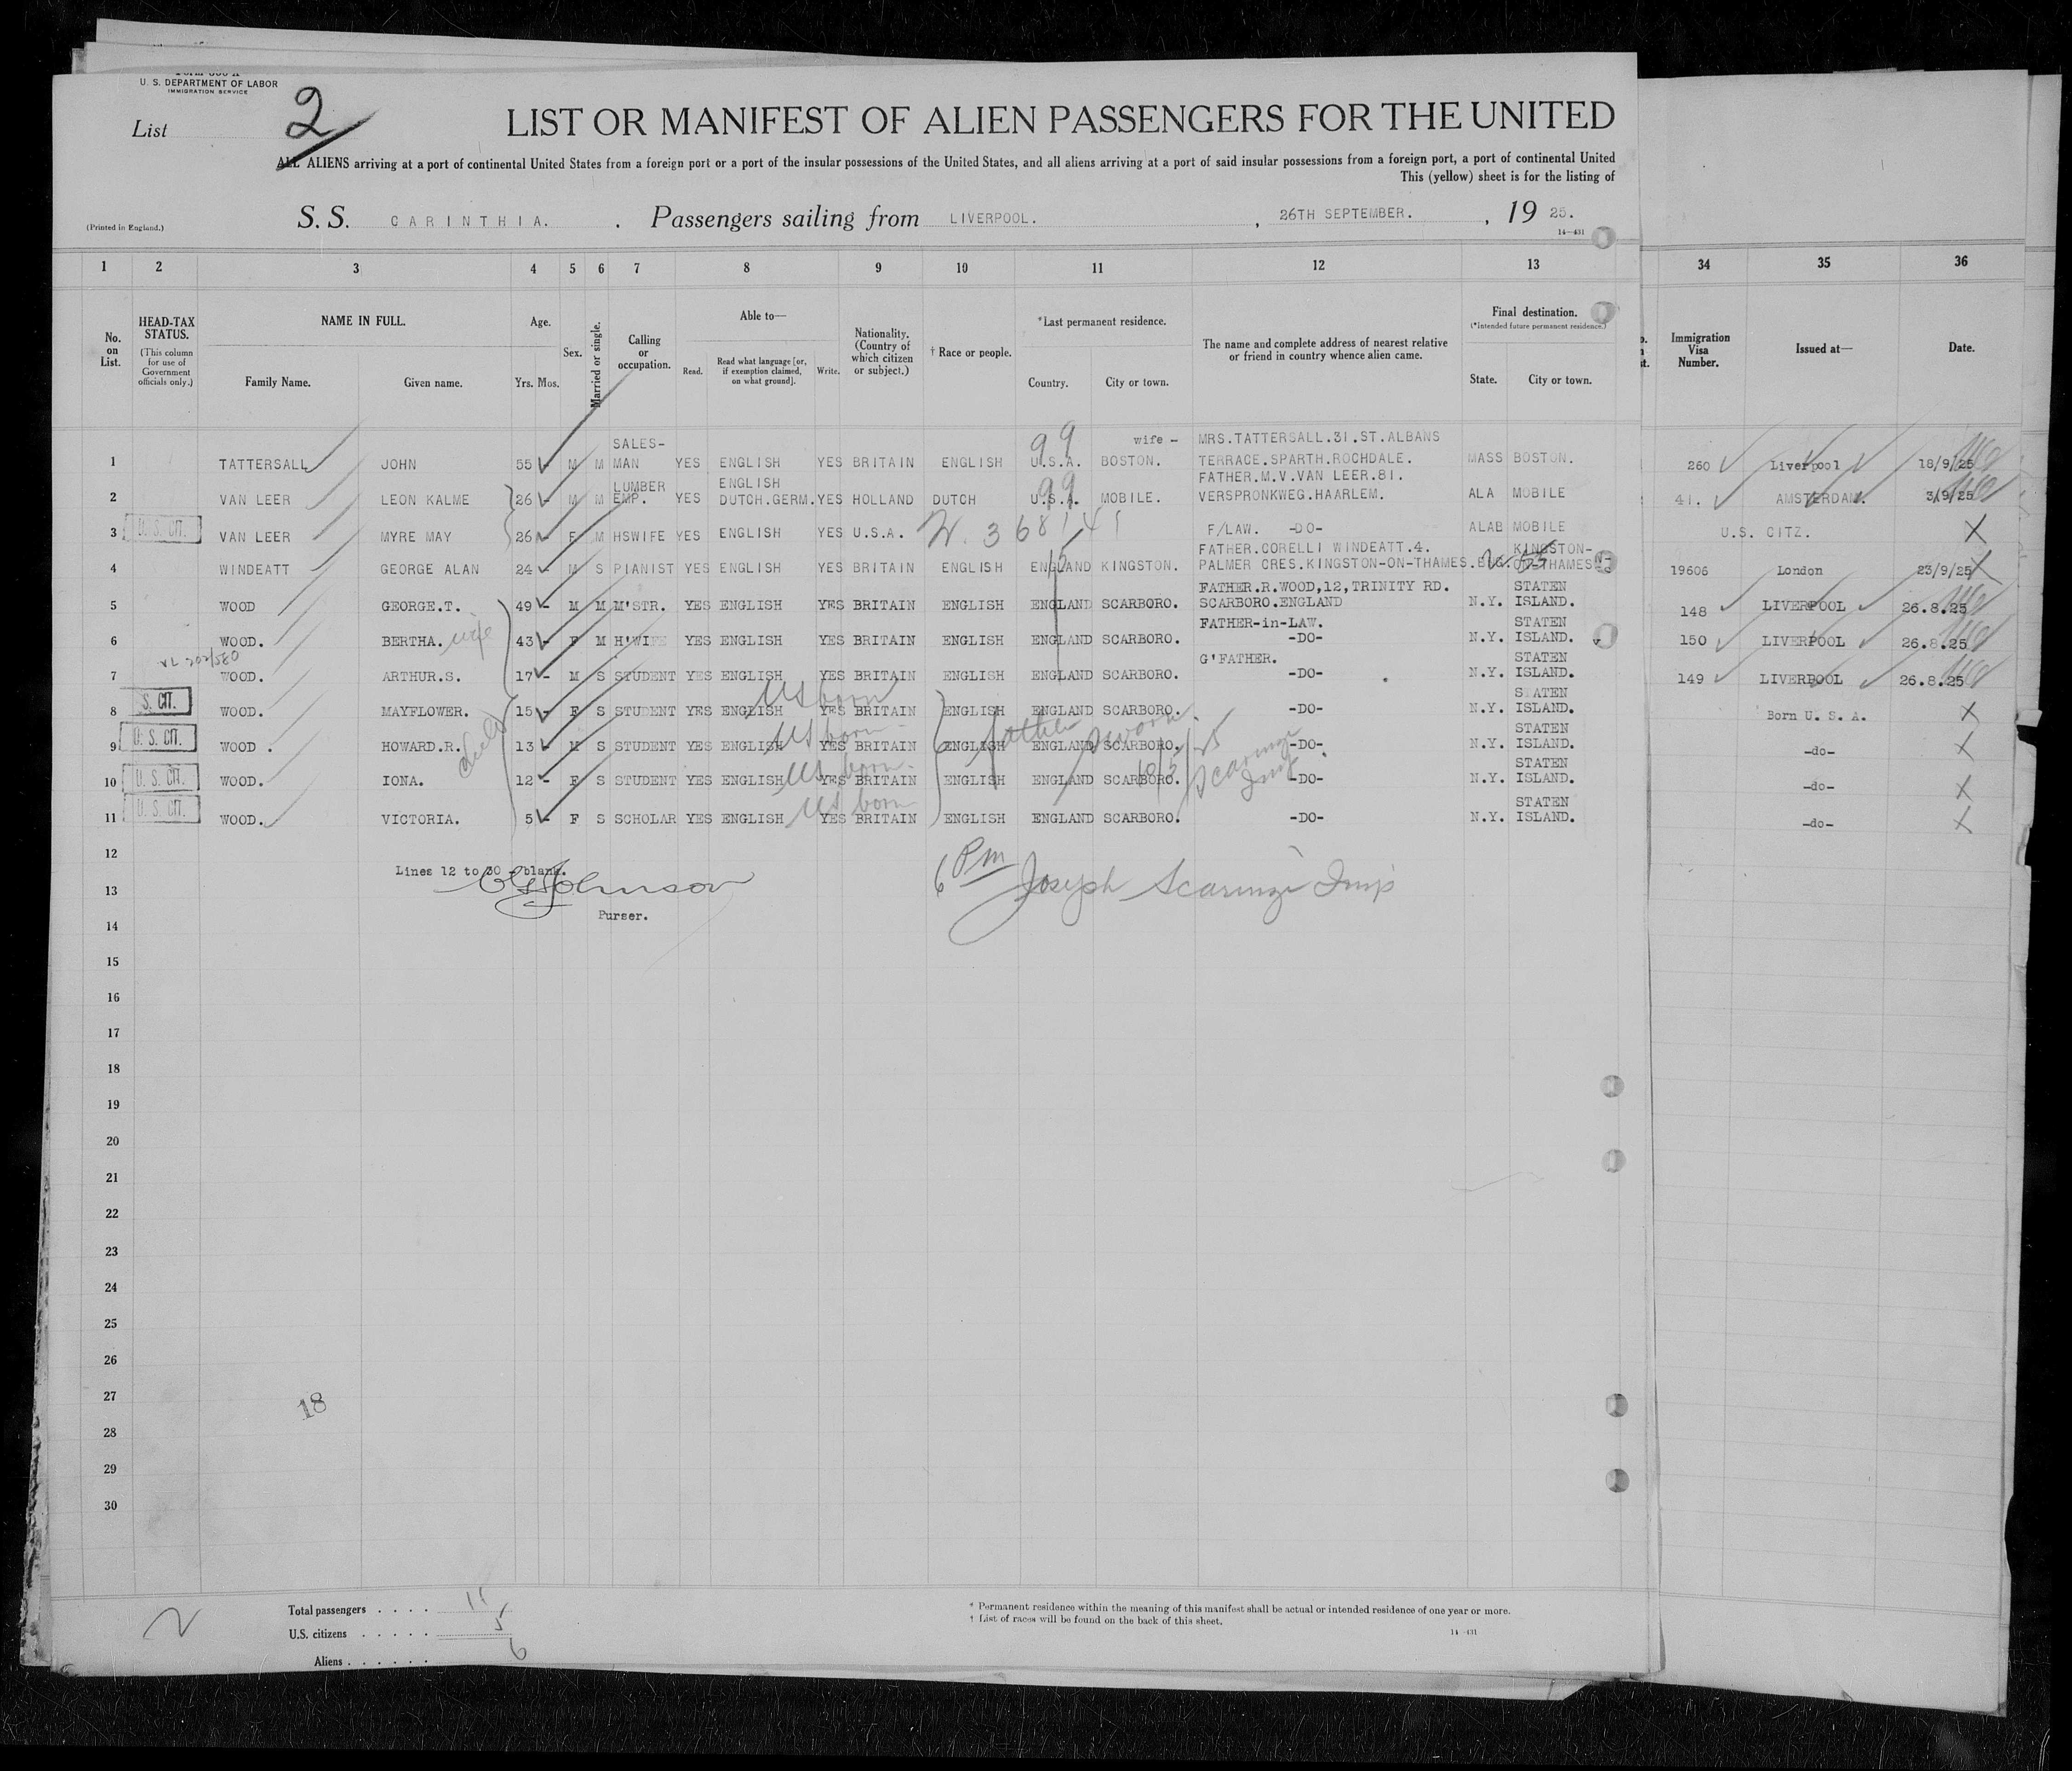 U. S. DEPARTMENT OF LABOR
IMMIGRATION SERVICE
List 2
LIST OR MANIFEST OF ALIEN PASSENGERS FOR THE UNITED
ALL ALIENS arriving at a port of continental United States from a foreign port or a port of the insular possessions of the United States, and all aliens arriving at a port of said insular possessions from a foreign port, a port of continental United
This (yellow) sheet is for the listing of
(Printed in England.)
S. S. CARINTHIA. , Passengers sailing from LIVERPOOL. , 26TH SEPTEMBER. , 19 25.
14—431
1 2 3 4 5 6 7 8 9 10 11 12 13 34 35 36
No. on List.
HEAD-TAX STATUS.
(This column for use of Government officials only.)
NAME IN FULL.
Family Name. Given name.
Age.
Yrs. Mos.
Sex.
Married or single.
Calling or occupation.
Able to—
Read. Read what language [or, if exemption claimed, on what ground]. Write.
Nationality. (Country of which citizen or subject.)
† Race or people.
*Last permanent residence.
Country. City or town.
The name and complete address of nearest relative or friend in country whence alien came.
Final destination.
(*Intended future permanent residence.)
State. City or town.
Immigration Visa Number.
Issued at—
Date.
SALES- 99 wife - MRS.TATTERSALL.31.ST.ALBANS
1 TATTERSALL JOHN 55 M M MAN YES ENGLISH YES BRITAIN ENGLISH U.S.A. BOSTON. TERRACE.SPARTH.ROCHDALE. MASS BOSTON. 260 Liverpool 18/9/25
LUMBER ENGLISH 99 FATHER.M.V.VAN LEER.81.
2 VAN LEER LEON KALME 26 M M EMP. YES DUTCH.GERM. YES HOLLAND DUTCH U.S.A. MOBILE. VERSPRONKWEG.HAARLEM. ALA MOBILE 41. AMSTERDAM. 3/9/25
3 U. S. CIT. VAN LEER MYRE MAY 26 F M HSWIFE YES ENGLISH YES U.S.A. F/LAW. -DO- ALAB MOBILE U.S. CITZ. X
FATHER.CORELLI WINDEATT.4. KINGSTON-
4 WINDEATT GEORGE ALAN 24 M S PIANIST YES ENGLISH YES BRITAIN ENGLISH ENGLAND KINGSTON. PALMER CRES.KINGSTON-ON-THAMES. ENG. ON-THAMES 19606 London 23/9/25 X
FATHER.R.WOOD,12,TRINITY RD. STATEN
5 WOOD GEORGE.T. 49 - M M M'STR. YES ENGLISH YES BRITAIN ENGLISH ENGLAND SCARBORO. SCARBORO.ENGLAND N.Y. ISLAND. 148 LIVERPOOL 26.8.25
FATHER-in-LAW. STATEN
6 WOOD. BERTHA. wife 43 - F M H'WIFE YES ENGLISH YES BRITAIN ENGLISH ENGLAND SCARBORO. -DO- N.Y. ISLAND. 150 LIVERPOOL 26.8.25
G'FATHER. STATEN
7 WOOD. ARTHUR.S. 17 - M S STUDENT YES ENGLISH YES BRITAIN ENGLISH ENGLAND SCARBORO. -DO- N.Y. ISLAND. 149 LIVERPOOL 26.8.25
US born STATEN
8 S. CIT. WOOD. MAYFLOWER. 15 - F S STUDENT YES ENGLISH YES BRITAIN ENGLISH ENGLAND SCARBORO. -DO- N.Y. ISLAND. Born U. S. A. X
US born father sworn STATEN
9 U. S. CIT. WOOD . HOWARD.R. 13 - M S STUDENT YES ENGLISH YES BRITAIN ENGLISH ENGLAND SCARBORO. -DO- N.Y. ISLAND. -do- X
US born Scarinzi Insp STATEN
10 U. S. CIT. WOOD. IONA. 12 - F S STUDENT YES ENGLISH YES BRITAIN ENGLISH ENGLAND SCARBORO. -DO- N.Y. ISLAND. -do- X
US born STATEN
11 U. S. CIT. WOOD. VICTORIA. 5 - F S SCHOLAR YES ENGLISH YES BRITAIN ENGLISH ENGLAND SCARBORO. -DO- N.Y. ISLAND. -do- X
12
Lines 12 to 30 - blank.
13 Johnson 6 Pm Joseph Scarinzi Insp
Purser.
14
15
16
17
18
19
20
21
22
23
24
25
26
27
18
28
29
30
Total passengers . . . . 11
U.S. citizens . . . . . 5
Aliens . . . . . . 6
* Permanent residence within the meaning of this manifest shall be actual or intended residence of one year or more.
† List of races will be found on the back of this sheet.
14—431